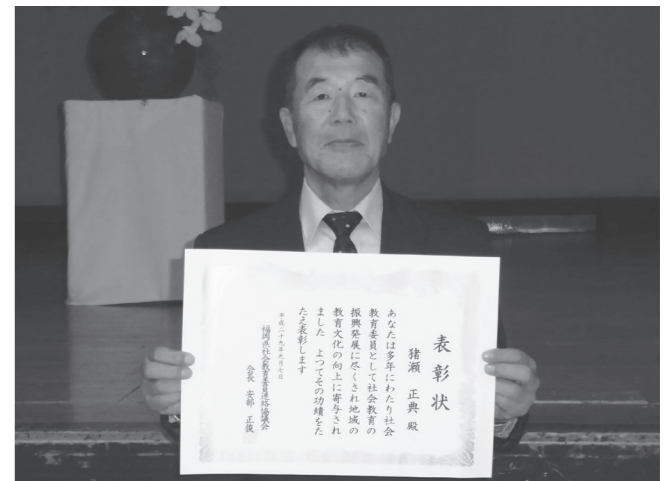 表彰状
猪瀬 正典 殿
あなたは多年にわたり社会
教育委員として社会教育の
振興発展に尽くされ地域の
教育文化の向上に寄与され
ました よつてその功績をた
たえ表彰します
平成二十九年九月七日
福岡県社会教育委員連絡協議会
会長 安部 正俊